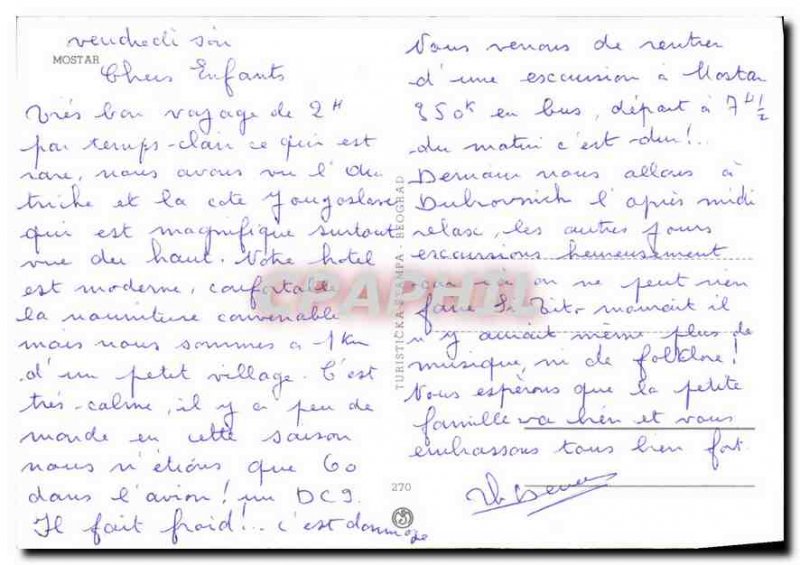 vendredi soir
MOSTAR
Chers Enfants
Très bon voyage de 2H
par temps clair ce qui est
rare, nous avons vu l'Au
triche et la cote Yougoslave
qui est magnifique surtout
vue du haut. Notre hotel
est moderne, confortable
la nourriture convenable
mais nous sommes a 1 km
d'un petit village. C'est
très calme, il y a peu de
monde en cette saison
nous n'étions que 60
dans l'avion! un DC9.
Il fait froid!.. c'est dommage
Nous venons de rentrer
d'une excursion à Mostar
350k en bus, départ à 7H1/2
du matin c'est dur!..
Demain nous allons à
Dubrovnich l'après midi
relaxe, les autres jours
excursions heureusement
car ici on ne peut rien
faire Si Tito mourait il
n'y aurait même plus de
musique, ni de folklore!
Nous espérons que la petite
famille va bien et vous
embrassons tous bien fort.
TURISTIČKA ŠTAMPA - BEOGRAD
270
CPAPHIL